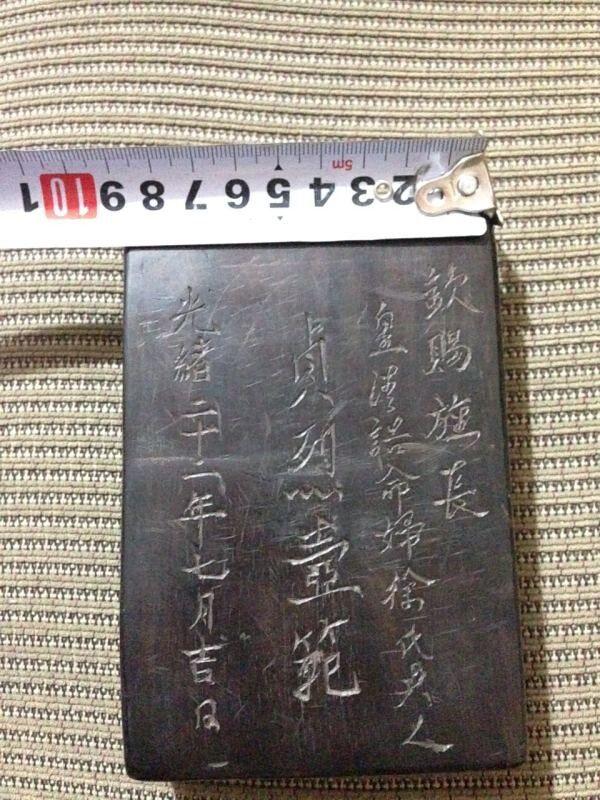 欽賜旌長
皇清誥命婦徐氏人
貞烈壼範
光緒二十二年七月吉日
2 3 4 5 6 7 8 9 10 1
5m